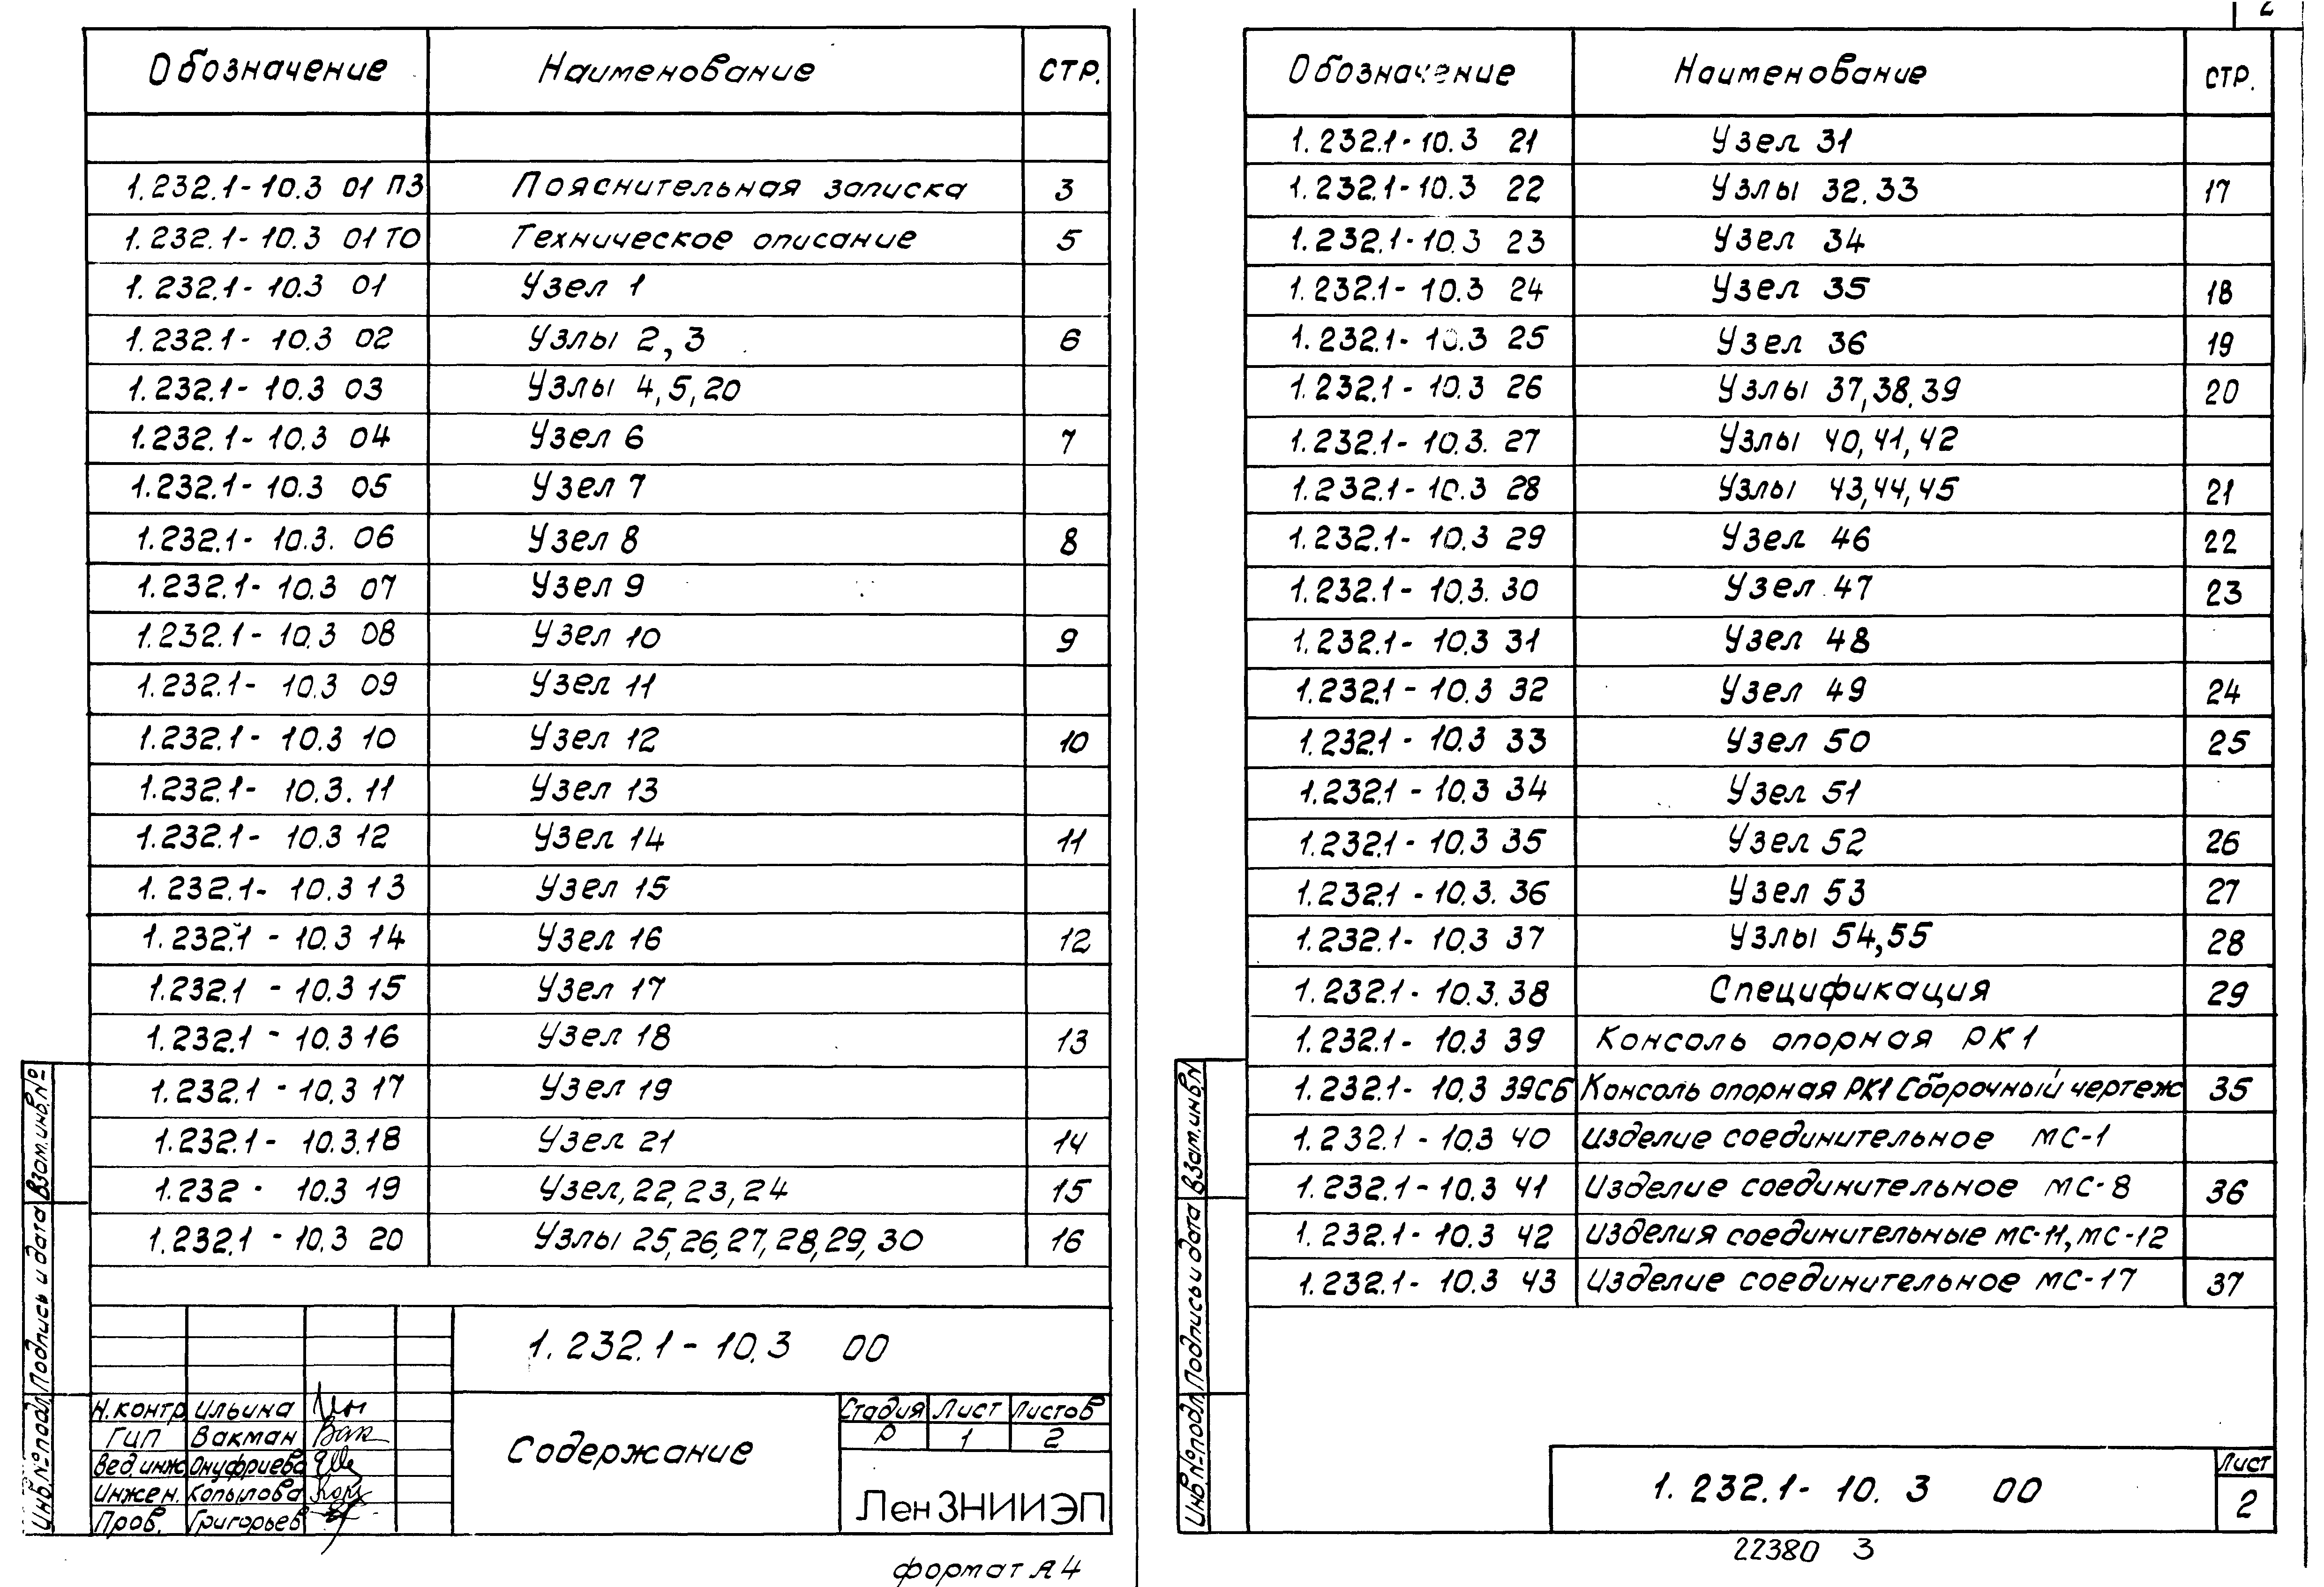 Обозначение Наименование СТР.
1.232.1-10.3 01 ПЗ Пояснительная записка 3
1.232.1-10.3 01 ТО Техническое описание 5
1.232.1-10.3 01 Узел 1
1.232.1-10.3 02 Узлы 2,3 6
1.232.1-10.3 03 Узлы 4,5,20
1.232.1-10.3 04 Узел 6 7
1.232.1-10.3 05 Узел 7
1.232.1-10.3. 06 Узел 8 8
1.232.1-10.3 07 Узел 9
1.232.1-10.3 08 Узел 10 9
1.232.1-10.3 09 Узел 11
1.232.1-10.3 10 Узел 12 10
1.232.1-10.3. 11 Узел 13
1.232.1-10.3 12 Узел 14 11
1.232.1-10.3 13 Узел 15
1.232.1-10.3 14 Узел 16 12
1.232.1-10.3 15 Узел 17
1.232.1-10.3 16 Узел 18 13
1.232.1-10.3 17 Узел 19
1.232.1-10.3.18 Узел 21 14
1.232-10.3 19 Узел,22,23,24 15
1.232.1-10.3 20 Узлы 25,26,27,28,29,30 16
1.232.1-10.3 00
Содержание
Стадия Лист Листов
Р 1 2
ЛенЗНИИЭП
Н.контр Ильина
ГИП Вакман
Вед.инж Онуфриева
Инжен. Копылова
Пров. Григорьев
Инв.№подл. Подпись и дата Взам.инв.№
формат А4
2
Обозначение Наименование СТР.
1.232.1-10.3 21 Узел 31
1.232.1-10.3 22 Узлы 32.33 17
1.232.1-10.3 23 Узел 34
1.232.1-10.3 24 Узел 35 18
1.232.1-10.3 25 Узел 36 19
1.232.1-10.3 26 Узлы 37,38.39 20
1.232.1-10.3. 27 Узлы 40,41,42
1.232.1-10.3 28 Узлы 43,44,45 21
1.232.1-10.3 29 Узел 46 22
1.232.1-10.3. 30 Узел 47 23
1.232.1-10.3 31 Узел 48
1.232.1-10.3 32 Узел 49 24
1.232.1-10.3 33 Узел 50 25
1.232.1-10.3 34 Узел 51
1.232.1-10.3 35 Узел 52 26
1.232.1-10.3. 36 Узел 53 27
1.232.1-10.3 37 Узлы 54,55 28
1.232.1-10.3.38 Спецификация 29
1.232.1-10.3 39 Консоль опорная РК1
1.232.1-10.3 39СБ Консоль опорная РК1 Сборочный чертеж 35
1.232.1-10.3 40 Изделие соединительное МС-1
1.232.1-10.3 41 Изделие соединительное МС-8 36
1.232.1-10.3 42 Изделия соединительные МС-11, МС-12
1.232.1-10.3 43 Изделие соединительное МС-17 37
Инв.№подл. Подпись и дата Взам.инв.№
1.232.1-10.3 00
Лист
2
22380 3